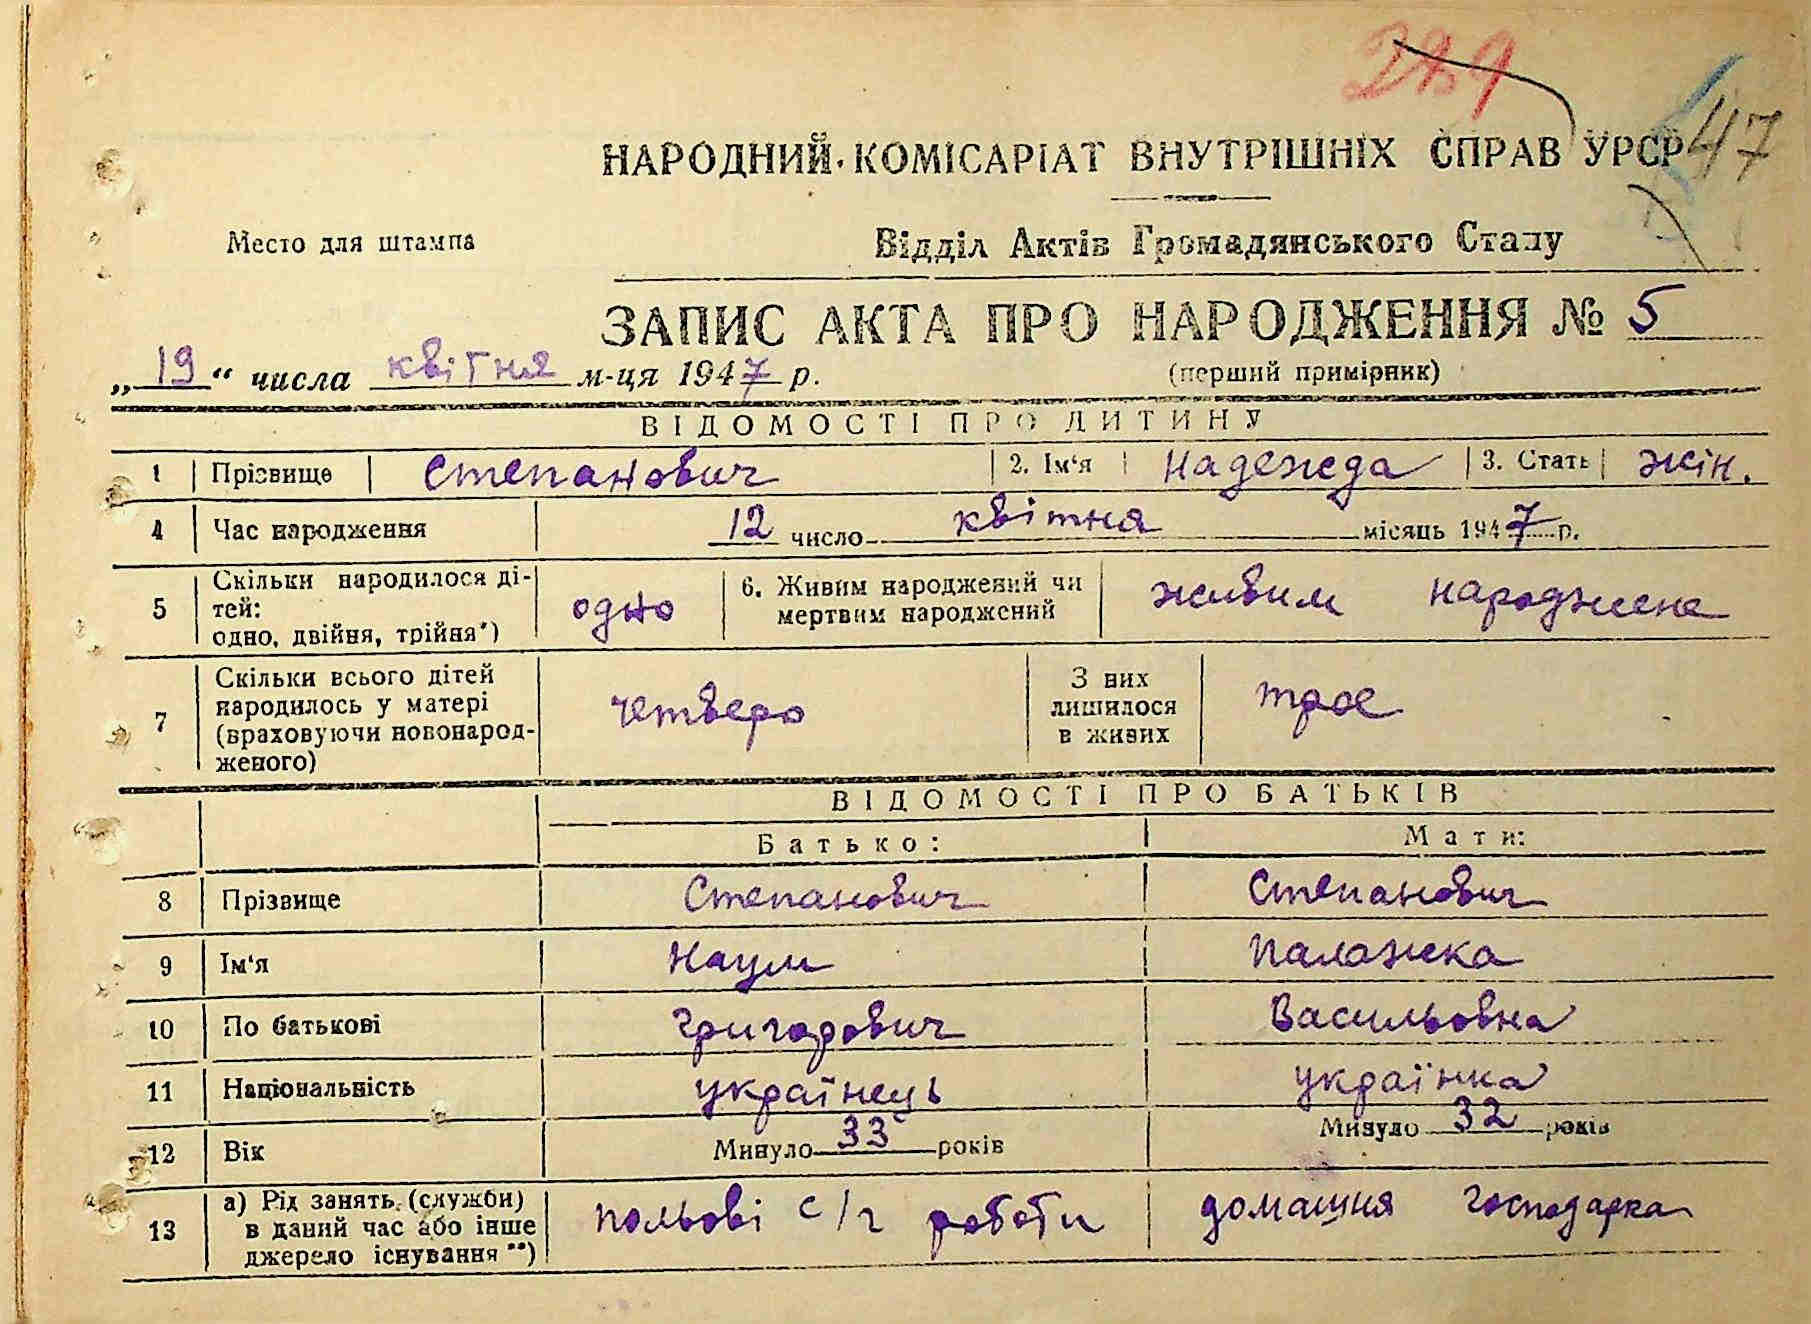 289
47
НАРОДНИЙ КОМІСАРІАТ ВНУТРІШНІХ СПРАВ УРСР
Место для штампа
Відділ Актів Громадянського Стану
ЗАПИС АКТА ПРО НАРОДЖЕННЯ № 5
„19“ числа квітня м-ця 1947 р.
(перший примірник)
ВІДОМОСТІ ПРО ДИТИНУ
1 Прізвище Степанович 2. Ім‘я Надежда 3. Стать жін.
4 Час народження 12 число квітня місяць 1947 р.
5 Скільки народилося ді-
тей:
одно, двійня, трійня*)
одно
6. Живим народжений чи
мертвим народжений
живим народжене
7 Скільки всього дітей
народилось у матері
(враховуючи новонарод-
женого)
четверо
З них
лишилося
в живих
троє
ВІДОМОСТІ ПРО БАТЬКІВ
Батько: Мати:
8 Прізвище Степанович Степанович
9 Ім‘я Наум Палажка
10 По батькові Григорович Васильовна
11 Національність українець українка
12 Вік Минуло 33 років Минуло 32 років
13 а) Рід занять (служби)
в даний час або інше
джерело існування **)
польові с/г роботи домашня господарка